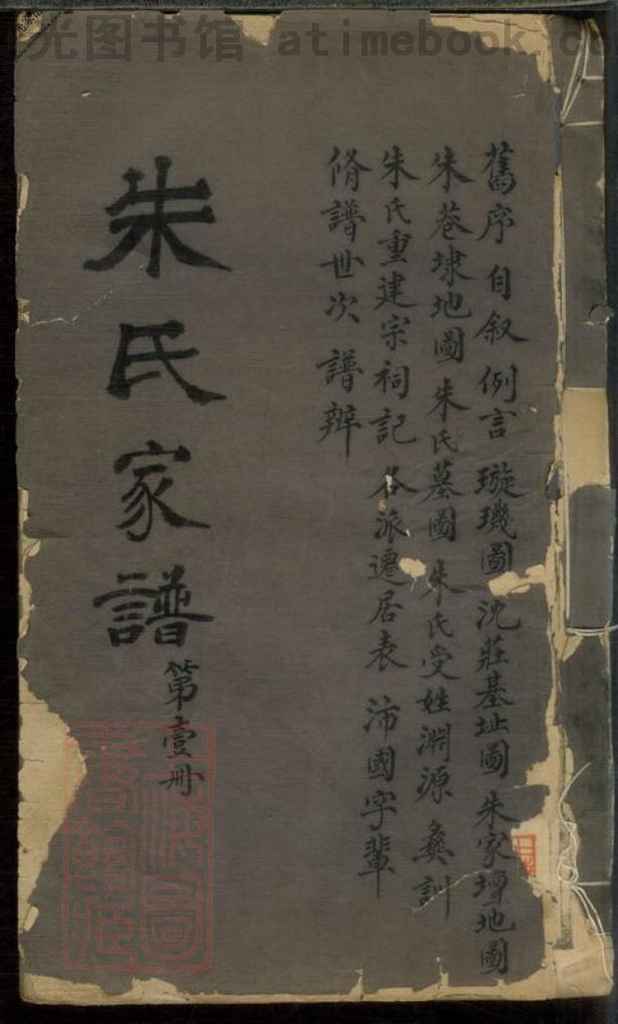 光图书馆 atimebook.co
舊序 自叙 例言 璇璣圖 沈莊基址圖 朱家增地圖
朱巷埭地圖 朱氏墓圖 朱氏受姓淵源 彝訓
朱氏重建宗祠記 各派遷居表 沛國字輩
脩譜世次 譜辯
朱氏家譜
第壹册